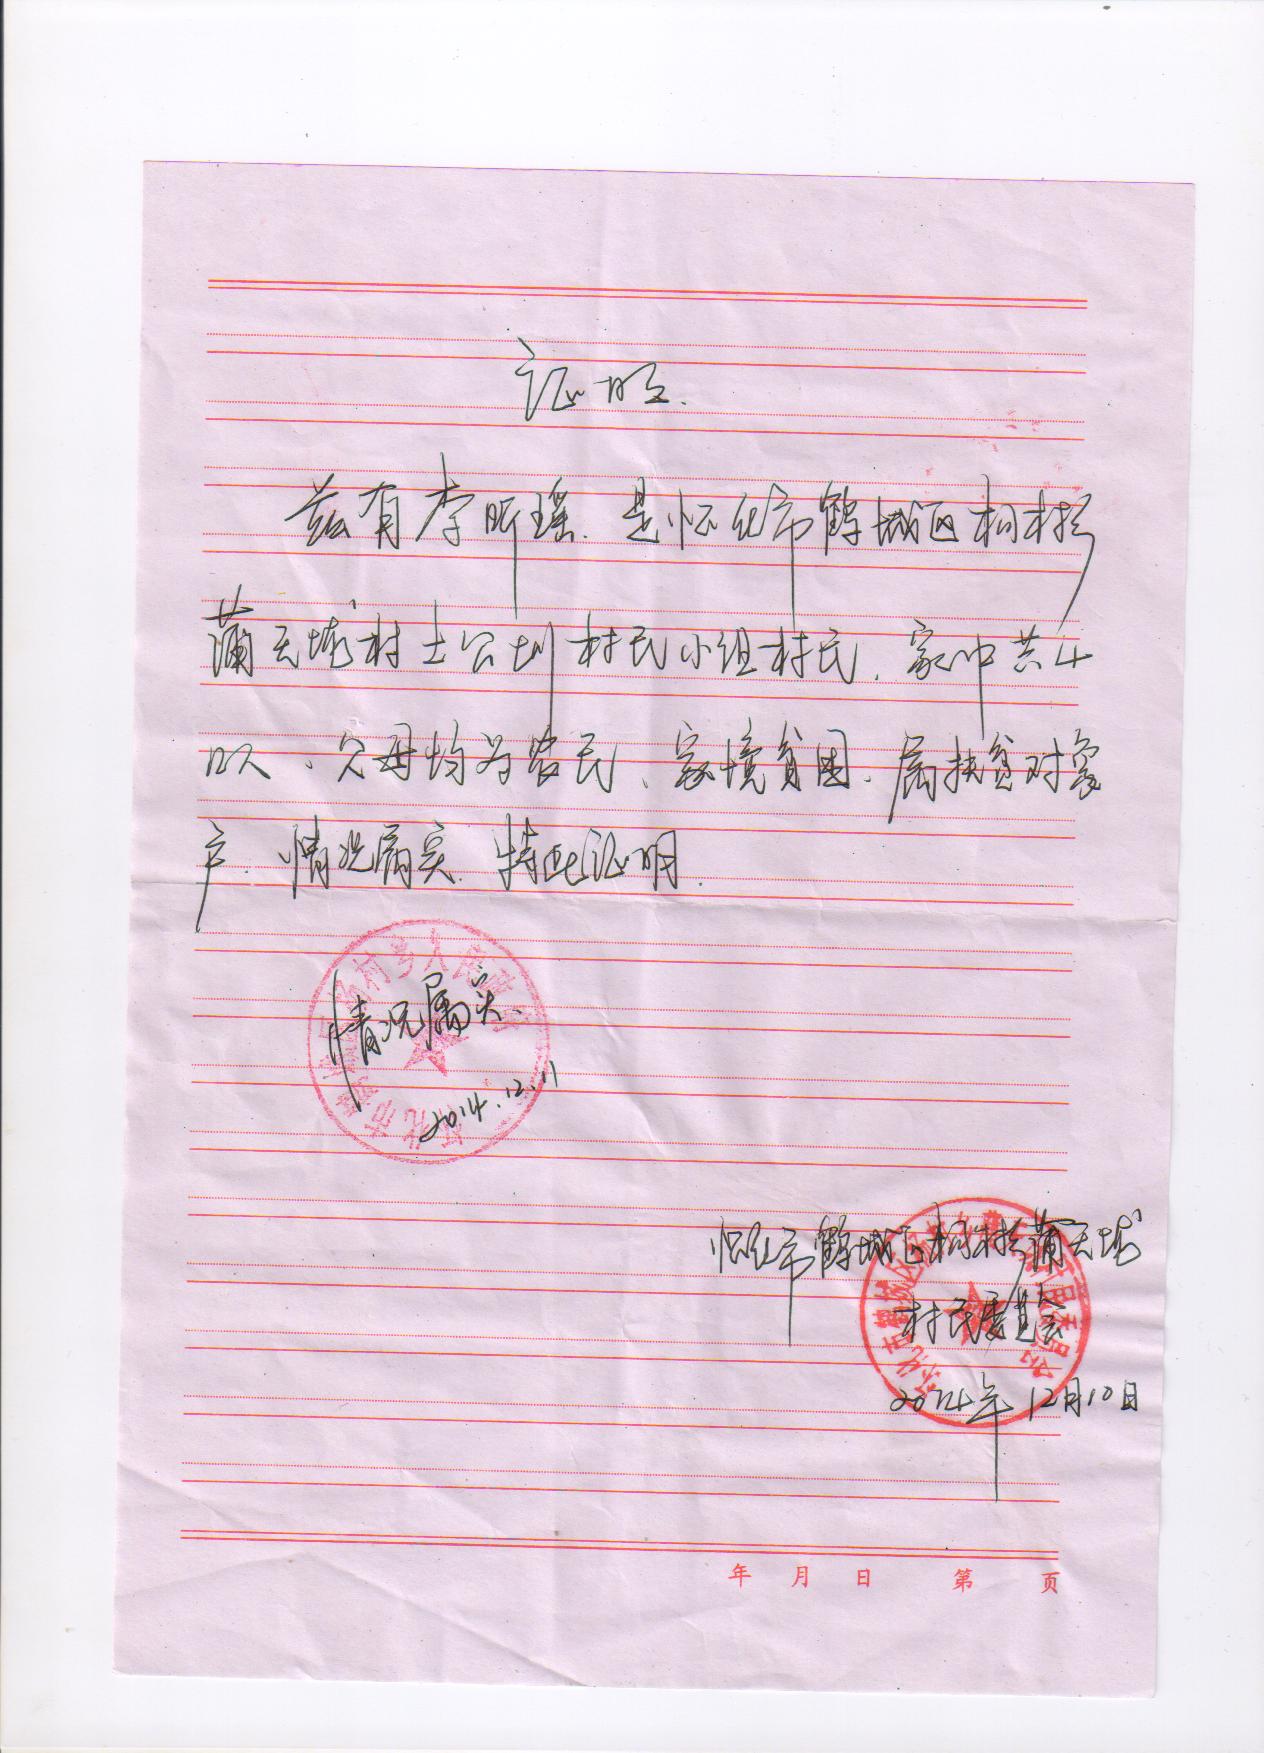 证明.
兹有李昕瑶.是怀化市鹤城区杨村乡
蒲天垅村土公圳村民小组村民.家中共4
口人、父母均为农民、家境贫困.属扶贫对象
户.情况属实.特此证明.
情况属实.
2014.12.11
怀化市鹤城区杨村乡蒲天垅
村民委员会
2014年12月10日
年 月 日 第 页